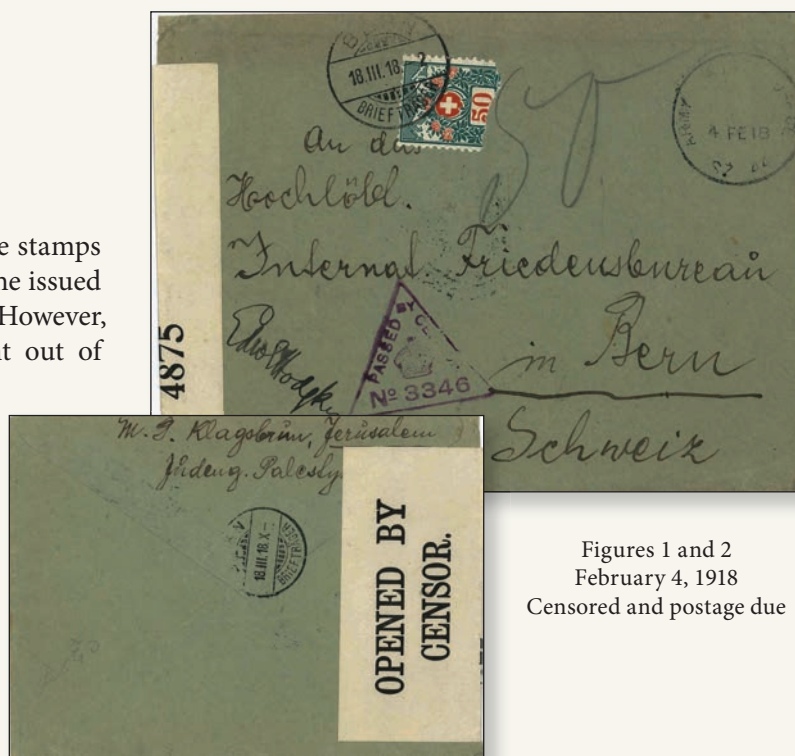 e stamps
ne issued
However,
t out of
18.III.18.
BRIEFTRÄGER
50
4 FE 18
An das
Hochlöbl.
Internat. Friedensbureau
in Bern
Schweiz
4875
PASSED BY
No 3346
M. J. Klagsbrun, Jerusalem
Judeng.
18.III.18.X-
BRIEFTRÄGER
OPENED BY
CENSOR.
Figures 1 and 2
February 4, 1918
Censored and postage due